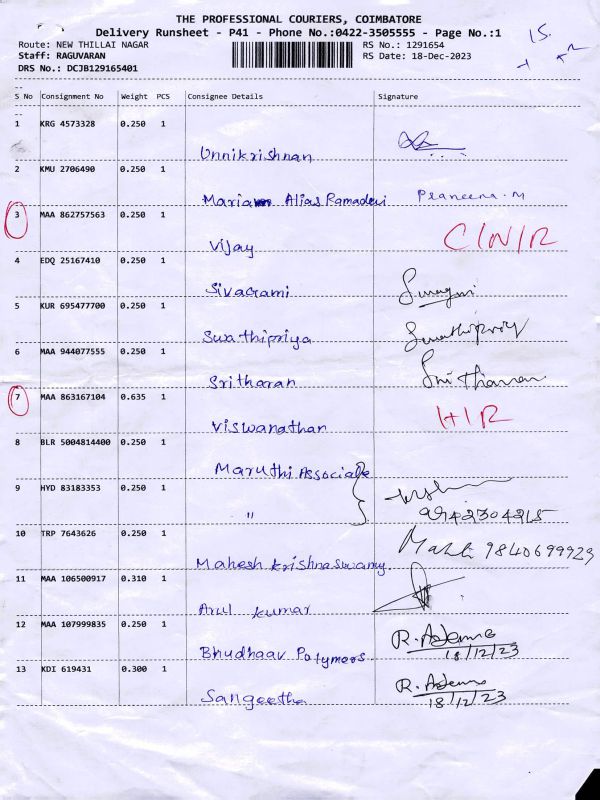 THE PROFESSIONAL COURIERS, COIMBATORE
Delivery Runsheet - P41 - Phone No.:0422-3505555 - Page No.:1
15.
Route: NEW THILLAI NAGAR RS No.: 1291654
Staff: RAGUVARAN RS Date: 18-Dec-2023
DRS No.: DCJB129165401
S No Consignment No Weight PCS Consignee Details Signature
1 KRG 4573328 0.250 1
Unnikrishnan
2 KMU 2706490 0.250 1
Mariam Alias Ramadevi Praneena.M
3 MAA 862757563 0.250 1
Vijay C/N/R
4 EDQ 25167410 0.250 1
Sivagami
5 KUR 695477700 0.250 1
Swathipriya Swathipriy
6 MAA 944077555 0.250 1
Sritharan Sritharan
7 MAA 863167104 0.635 1
Viswanathan H/R
8 BLR 5004814400 0.250 1
Maruthi Associate
9 HYD 83183353 0.250 1
"
10 TRP 7643626 0.250 1
Mahesh krishnaswamy 9840699929
11 MAA 106500917 0.310 1
Arul kumar
12 MAA 107999835 0.250 1
Bhudhaav Polymers 18/12/23
13 KDI 619431 0.300 1
Sangeetha 18/12/23